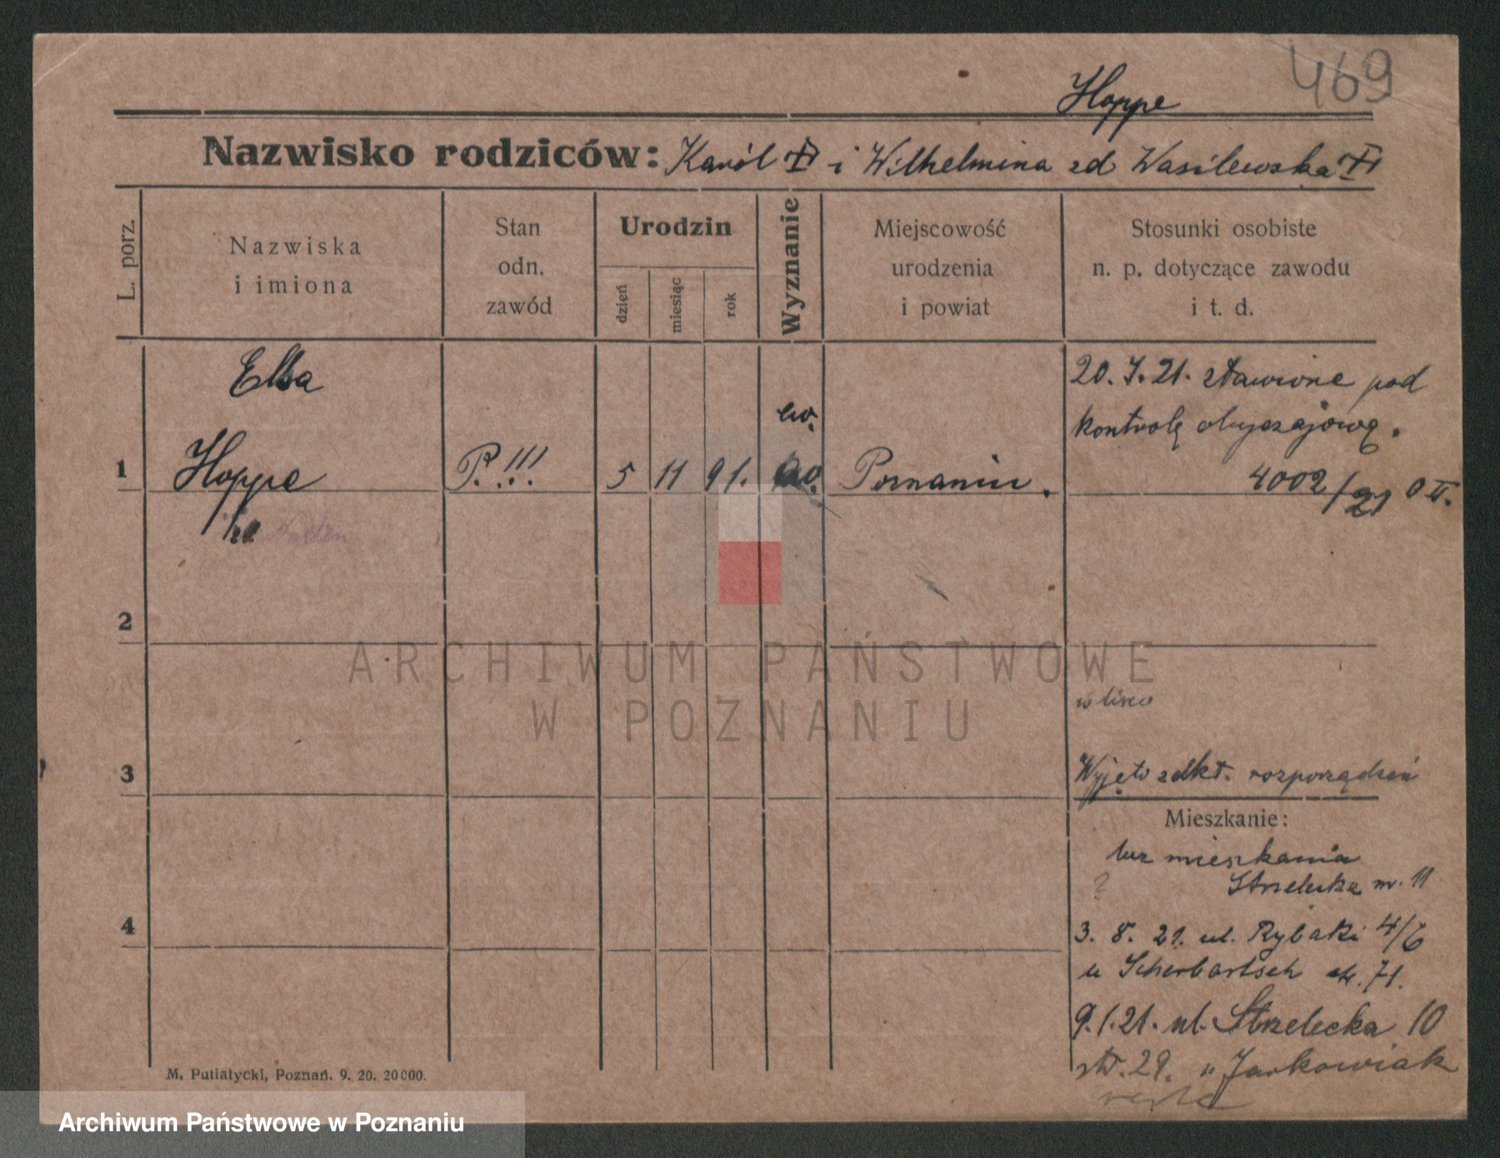 469
Hoppe
Nazwisko rodziców: Karól i Wilhelmina zd Wasilewska
L. porz.
Nazwiska
i imiona
Stan
odn.
zawód
Urodzin
dzień
miesiąc
rok
Wyznanie
Miejscowość
urodzenia
i powiat
Stosunki osobiste
n. p. dotyczące zawodu
i t. d.
Elsa
20. 7. 21. stawione pod
ew.
kontrolę obyczajową.
1
Hoppe
P. !!!
5
11
91.
Poznaniu.
4002/21 O II.
2
ARCHIWUM PAŃSTWOWE
W POZNANIU
3
Wyjęto rozporządzeń
Mieszkanie:
bez mieszkania
?
Strzelecka m. 11
4
3. 8. 21. ul. Rybaki 4/6
u Scherbartsch 71.
9. 1. 21. ul. Strzelecka 10
29. " Jankowiak
M. Putiatycki, Poznań. 9. 20. 20000.
Archiwum Państwowe w Poznaniu